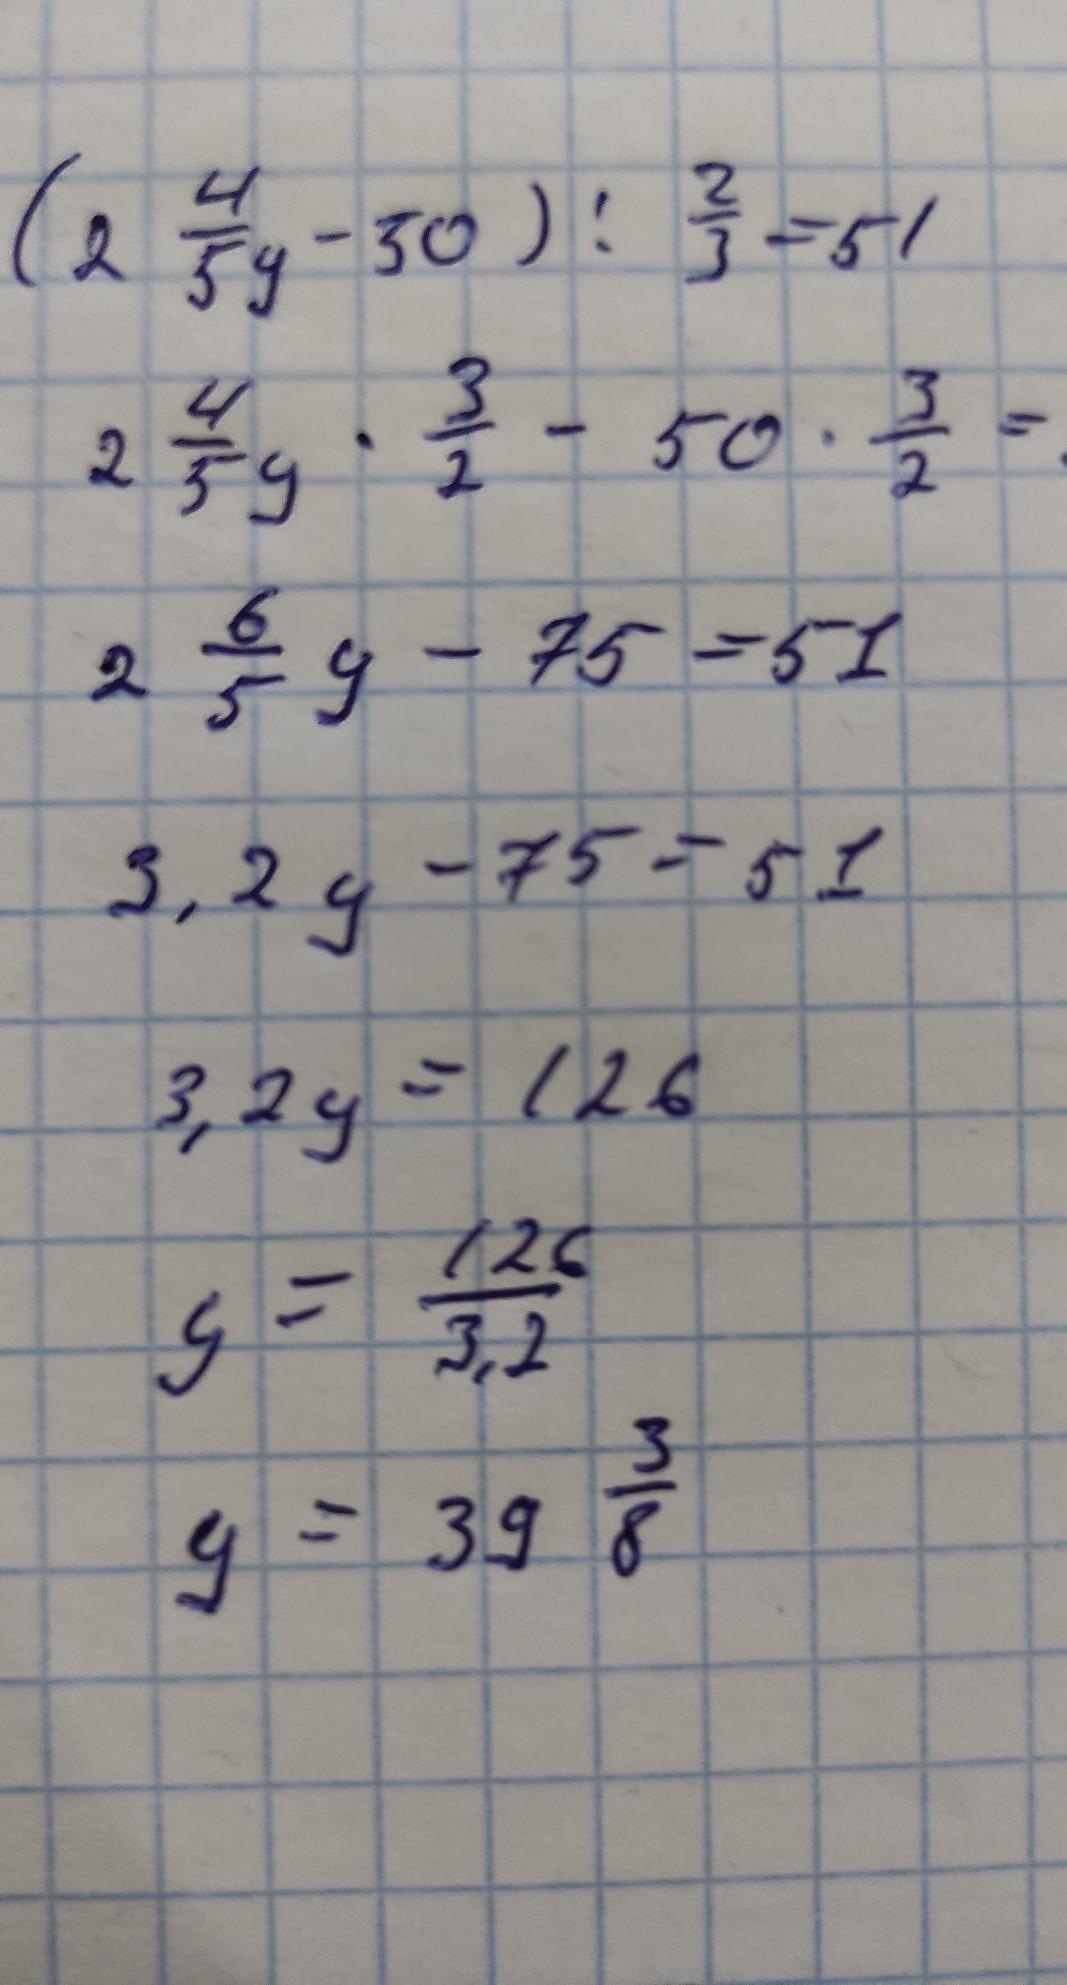 (2 4/5 y - 50) : 2/3 = 51
2 4/5 y · 3/2 - 50 · 3/2 =
2 6/5 y - 75 = 51
3,2 y - 75 = 51
3,2 y = 126
y = 126/3,2
y = 39 3/8